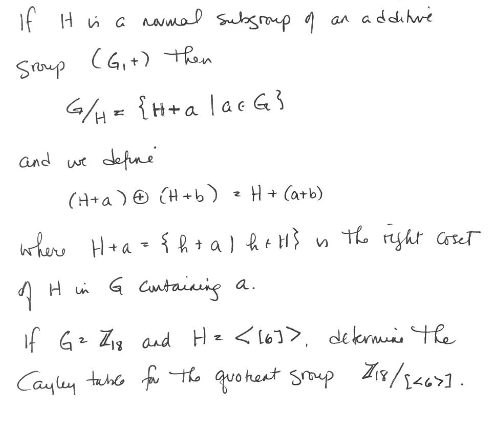 If H is a normal subgroup of an additive
group (G,+) then
G/H = {H+a | a ∈ G}
and we define
(H+a) ⊕ (H+b) = H + (a+b)
where H+a = {h+a | h ∈ H} is the right coset
of H in G containing a.
If G = ℤ₁₈ and H = <[6]>, determine the
Cayley table for the quotient group ℤ₁₈/[<6>].